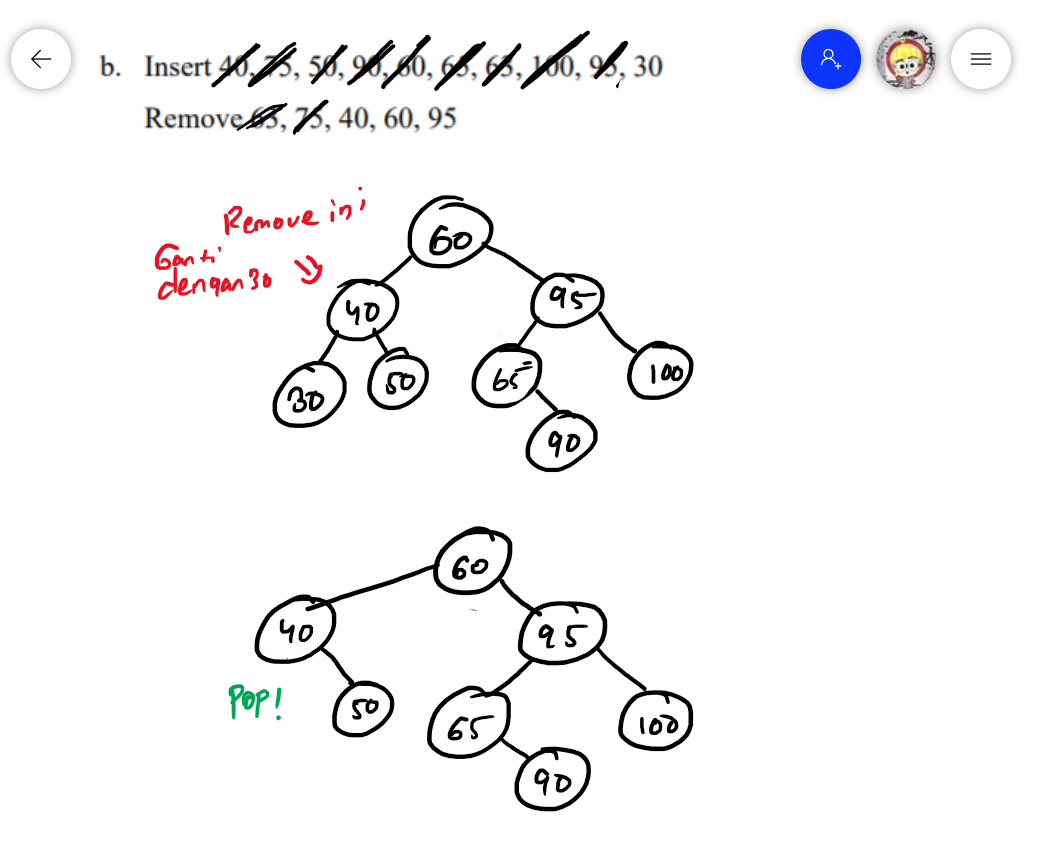 b. Insert 40, 75, 50, 90, 60, 65, 63, 100, 95, 30
Remove 63, 75, 40, 60, 95
Remove ini
Ganti
dengan 30
60
40
95
30
50
65
100
90
60
40
95
POP!
50
65
100
90